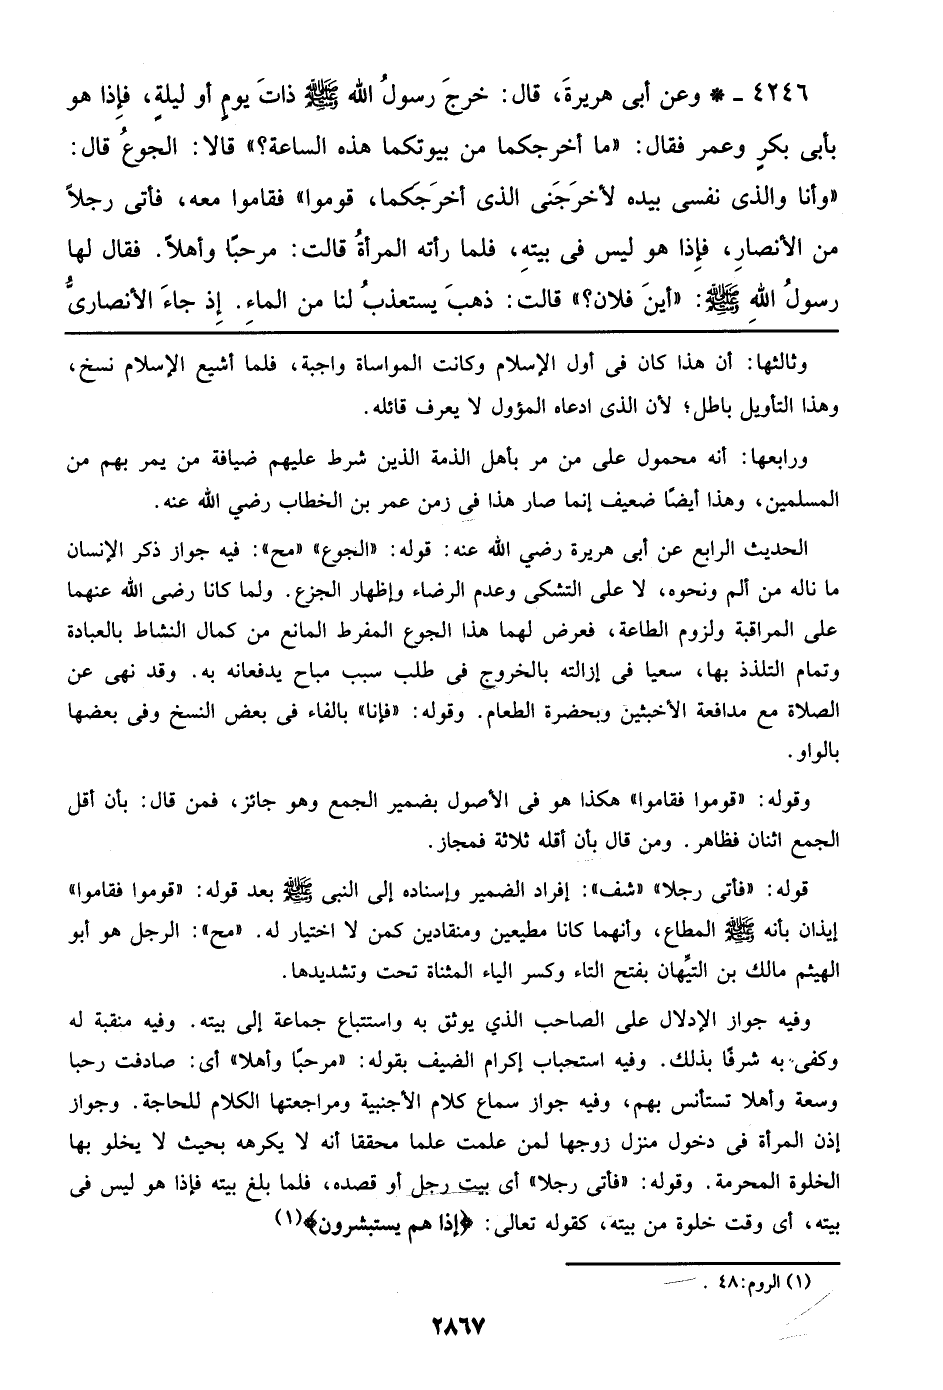 ٤٢٤٦ ـ * وعن أبى هريرةَ، قال: خرجَ رسولُ الله ﷺ ذاتَ يومٍ أو ليلةٍ، فإِذا هو
بأبى بكرٍ وعمر فقال: «ما أخرجكما من بيوتكما هذه الساعة؟» قالا: الجوعُ قال:
«وأنا والذى نفسى بيده لأخرَجَنى الذى أخرَجَكما، قوموا» فقاموا معه، فأتى رجلاً
من الأنصارِ، فإِذا هو ليس فى بيتهِ، فلما رأته المرأةُ قالت: مرحبًا وأهلاً. فقال لها
رسولُ اللهِ ﷺ: «أينَ فلان؟» قالت: ذهبَ يستعذبُ لنا من الماءِ. إِذ جاءَ الأنصارىُّ
وثالثها: أن هذا كان فى أول الإسلام وكانت المواساة واجبة، فلما أشيع الإسلام نسخ،
وهذا التأويل باطل؛ لأن الذى ادعاه المؤول لا يعرف قائله.
ورابعها: أنه محمول على من مر بأهل الذمة الذين شرط عليهم ضيافة من يمر بهم من
المسلمين، وهذا أيضًا ضعيف إنما صار هذا فى زمن عمر بن الخطاب رضي الله عنه.
الحديث الرابع عن أبى هريرة رضي الله عنه: قوله: «الجوع» «مح»: فيه جواز ذكر الإنسان
ما ناله من ألم ونحوه، لا على التشكى وعدم الرضاء وإظهار الجزع. ولما كانا رضى الله عنهما
على المراقبة ولزوم الطاعة، فعرض لهما هذا الجوع المفرط المانع من كمال النشاط بالعبادة
وتمام التلذذ بها، سعيا فى إزالته بالخروج فى طلب سبب مباح يدفعانه به. وقد نهى عن
الصلاة مع مدافعة الأخبثين وبحضرة الطعام. وقوله: «فإنا» بالفاء فى بعض النسخ وفى بعضها
بالواو.
وقوله: «قوموا فقاموا» هكذا هو فى الأصول بضمير الجمع وهو جائز، فمن قال: بأن أقل
الجمع اثنان فظاهر. ومن قال بأن أقله ثلاثة فمجاز.
قوله: «فأتى رجلا» «شف»: إفراد الضمير وإسناده إلى النبى ﷺ بعد قوله: «قوموا فقاموا»
إيذان بأنه ﷺ المطاع، وأنهما كانا مطيعين ومنقادين كمن لا اختيار له. «مح»: الرجل هو أبو
الهيثم مالك بن التيِّهان بفتح التاء وكسر الياء المثناة تحت وتشديدها.
وفيه جواز الإدلال على الصاحب الذي يوثق به واستتباع جماعة إلى بيته. وفيه منقبة له
وكفى به شرفًا بذلك. وفيه استحباب إكرام الضيف بقوله: «مرحبًا وأهلا» أى: صادفت رحبا
وسعة وأهلا تستأنس بهم، وفيه جواز سماع كلام الأجنبية ومراجعتها الكلام للحاجة. وجواز
إذن المرأة فى دخول منزل زوجها لمن علمت علما محققا أنه لا يكرهه بحيث لا يخلو بها
الخلوة المحرمة. وقوله: «فأتى رجلا» أى بيت رجل أو قصده، فلما بلغ بيته فإذا هو ليس فى
بيته، أى وقت خلوة من بيته، كقوله تعالى: ﴿إذا هم يستبشرون﴾(١)
(١) الروم:٤٨ .
٢٨٦٧